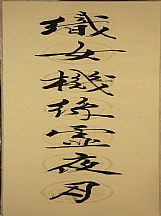 織女機絲虚夜月